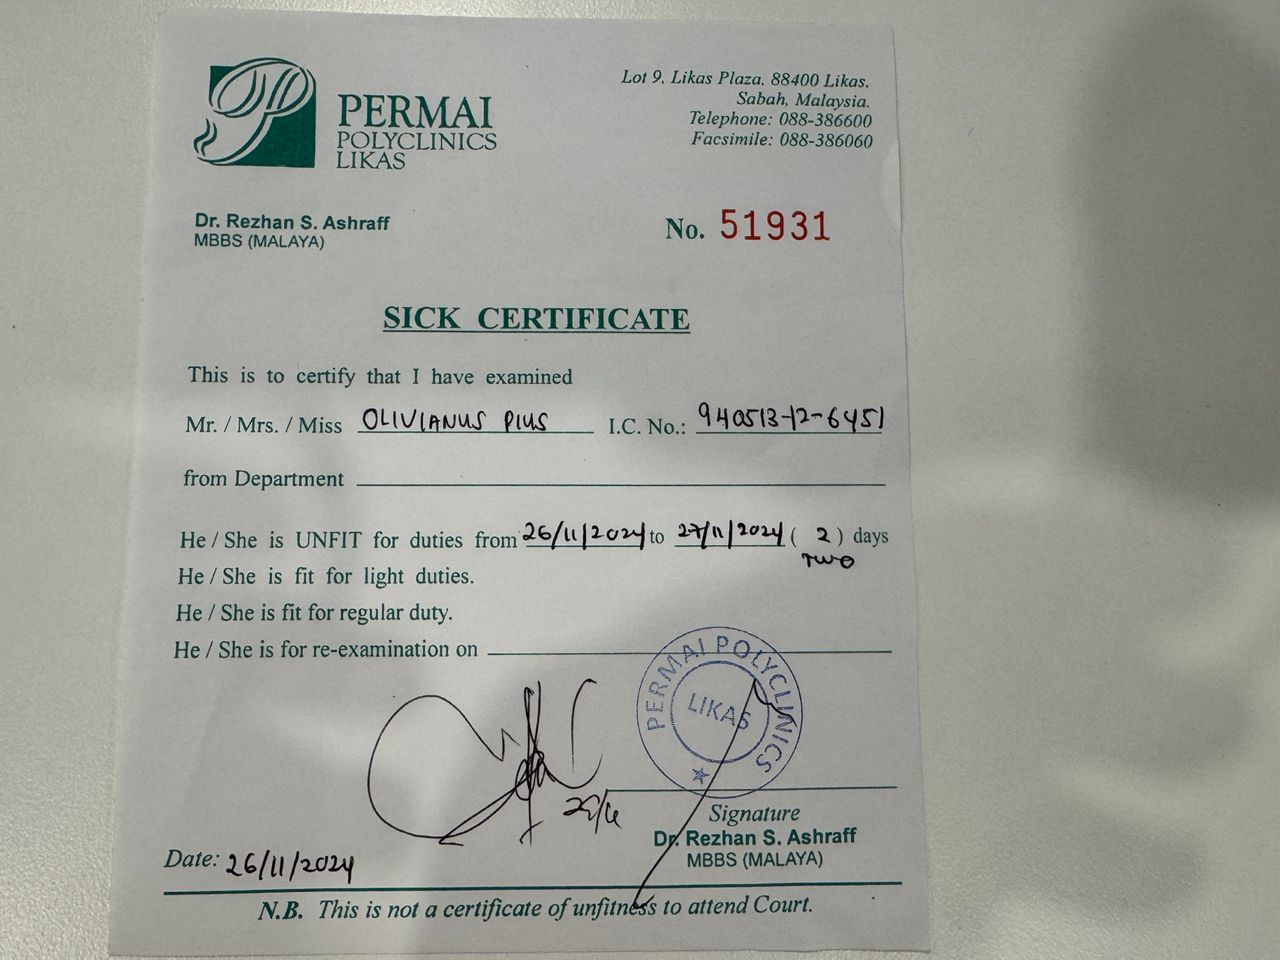 PERMAI
POLYCLINICS
LIKAS
Lot 9, Likas Plaza, 88400 Likas,
Sabah, Malaysia.
Telephone: 088-386600
Facsimile: 088-386060
Dr. Rezhan S. Ashraff
MBBS (MALAYA)
No. 51931
SICK CERTIFICATE
This is to certify that I have examined
Mr. / Mrs. / Miss OLIVIANUS PIUS I.C. No.: 940513-12-6451
from Department
He / She is UNFIT for duties from 26/11/2024 to 27/11/2024 ( 2 ) days
TWO
He / She is fit for light duties.
He / She is fit for regular duty.
He / She is for re-examination on
PERMAI POLYCLINICS
LIKAS
Signature
Dr. Rezhan S. Ashraff
MBBS (MALAYA)
Date: 26/11/2024
N.B. This is not a certificate of unfitness to attend Court.